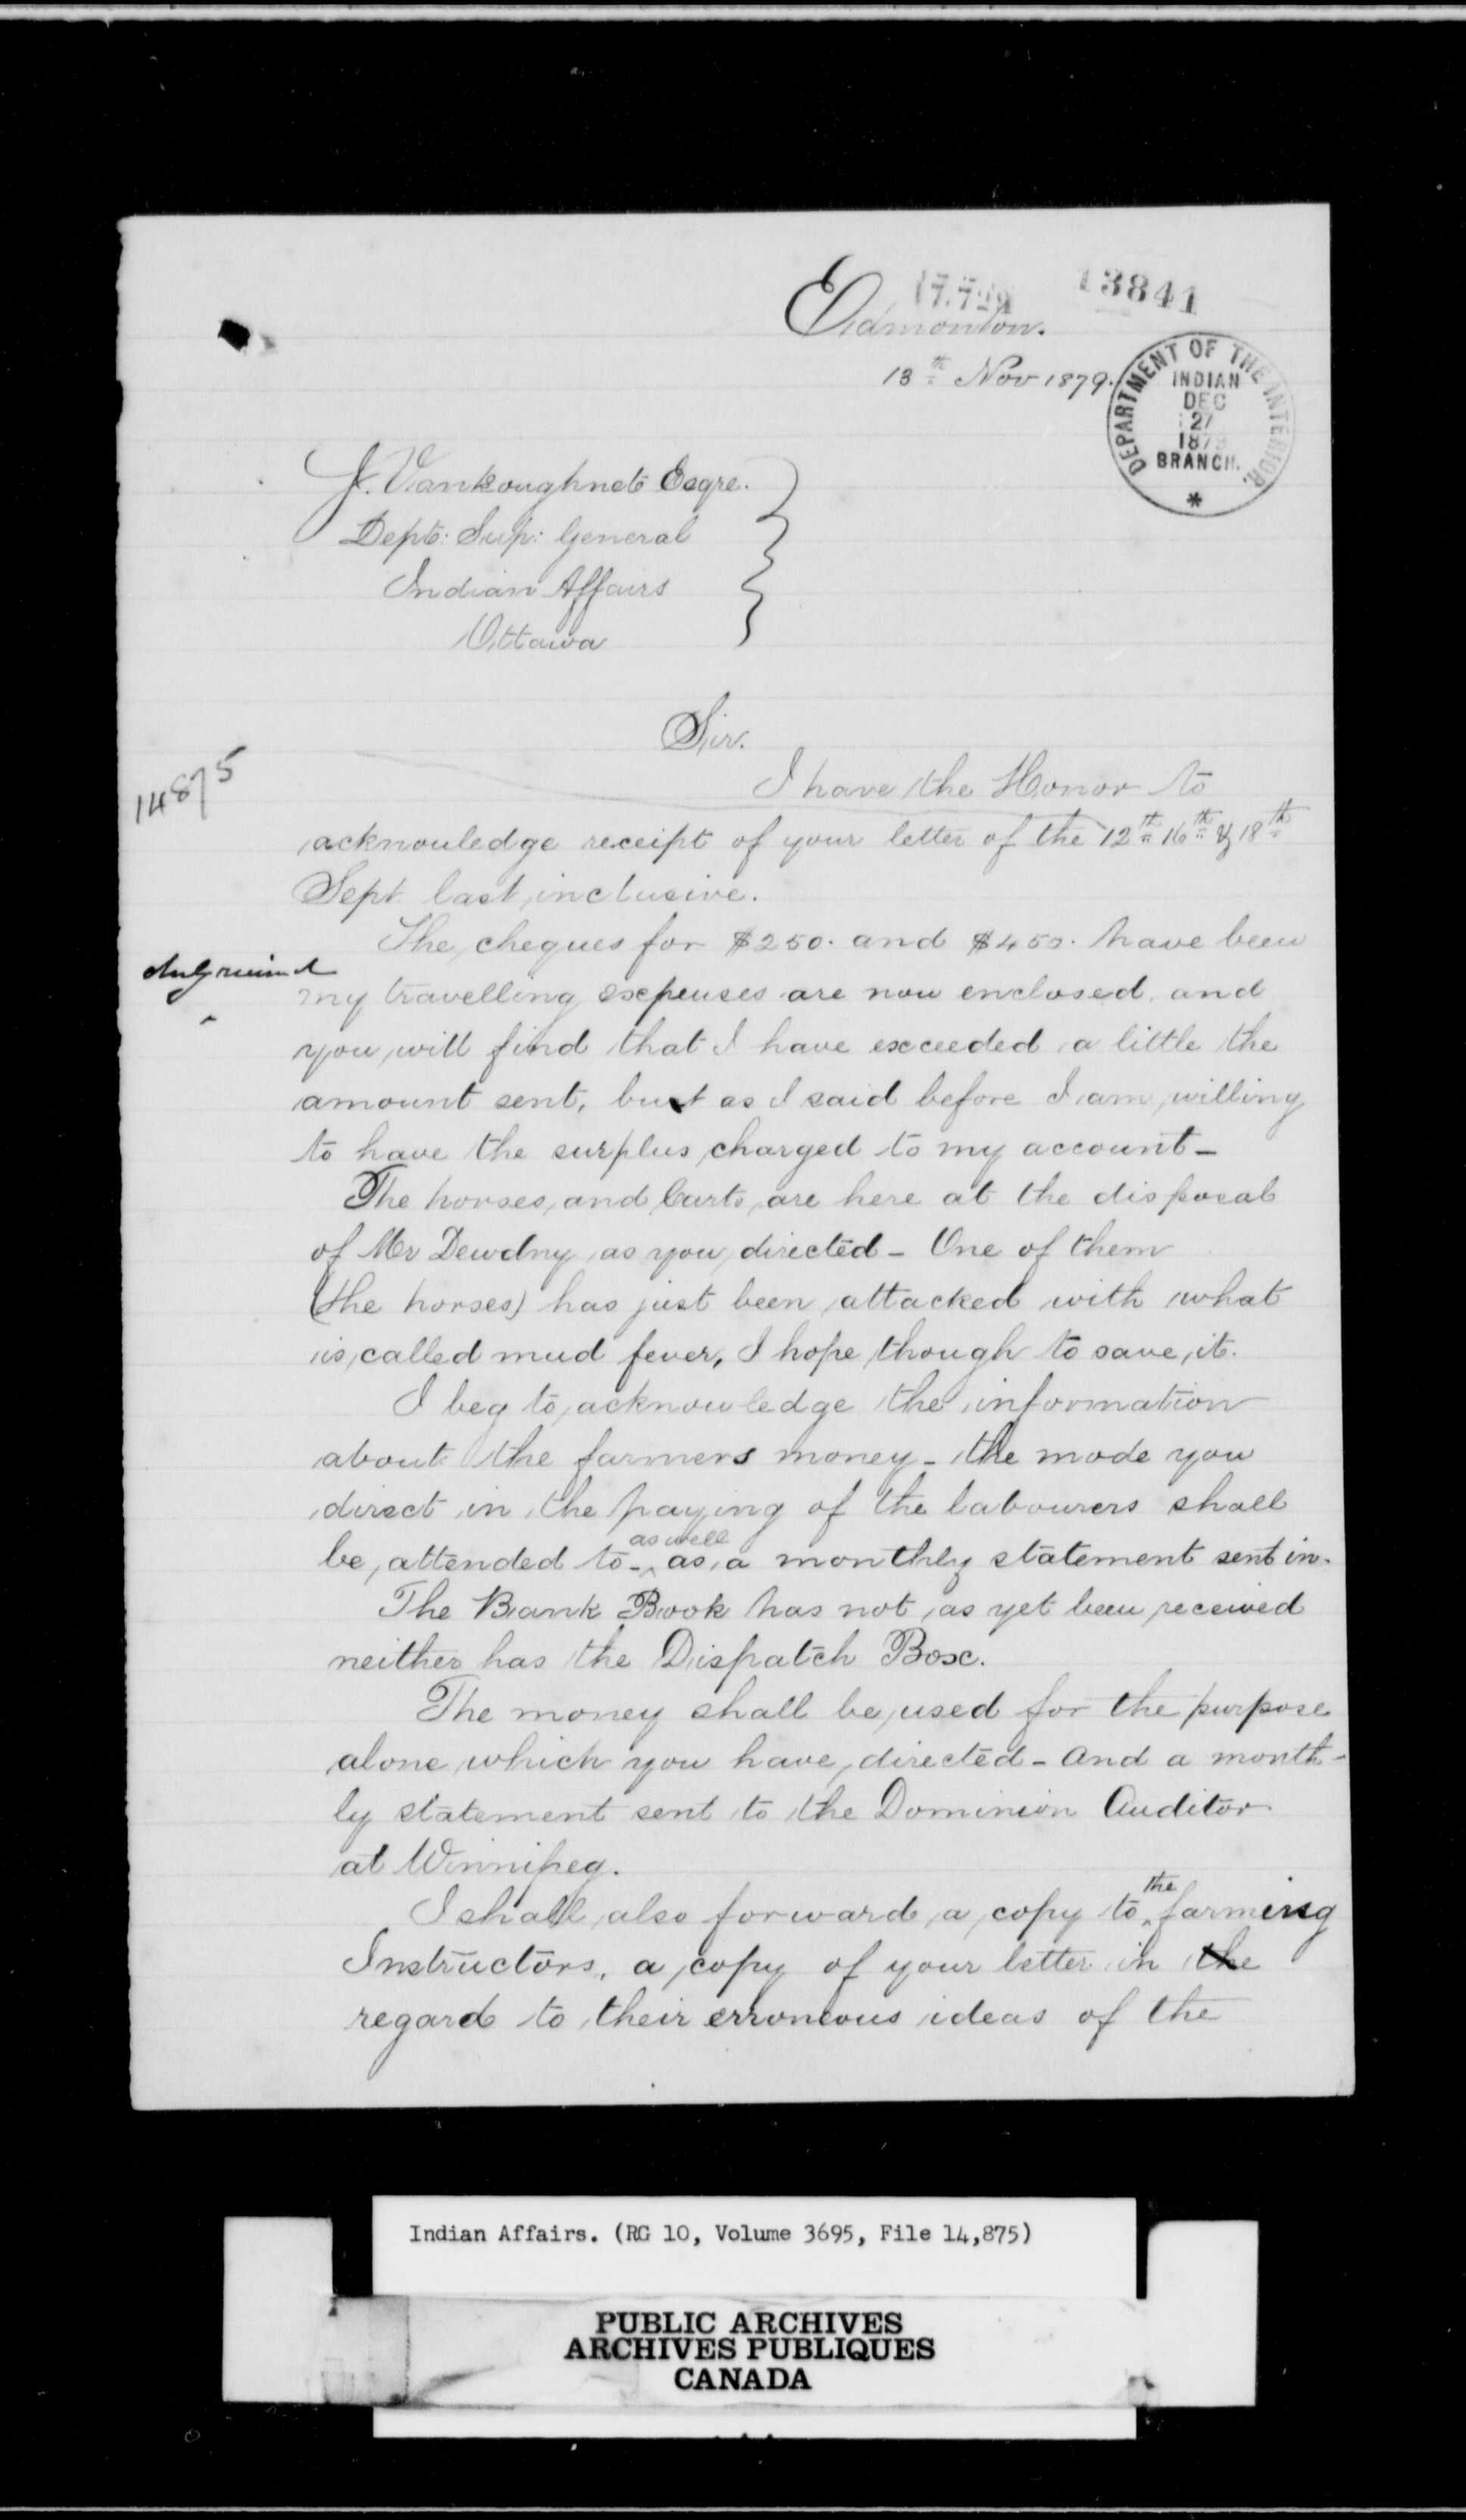 13841
Edmonton.
13th Nov 1879.
DEPARTMENT OF THE INTERIOR.
INDIAN
DEC
27
1879
BRANCH.
*
J. Vankoughnet Esqre.
Dept: Sup: General
Indian Affairs
Ottawa
Sir.
14875
I have the Honor to
acknowledge receipt of your letter of the 12th 16th & 18th
Sept. last, inclusive.
The cheques for $250. and $450. have been
my travelling expenses are now enclosed. and
you will find that I have exceeded a little the
amount sent, but as I said before I am willing
to have the surplus charged to my account -
The horses, and Carts, are here at the disposal
of Mr Dewdny as you directed - One of them
(the horses) has just been attacked with what
is called mud fever, I hope though to save it.
I beg to acknowledge the information
about the farmers money - the mode you
direct in the paying of the labourers shall
be attended to - as well as a monthly statement sent in.
The Bank Book has not as yet been received
neither has the Dispatch Box.
The money shall be used for the purpose
alone which you have directed - And a month-
ly statement sent to the Dominion Auditor
at Winnipeg.
I shall also forward a copy to the farming
Instructors, a copy of your letter in the
regard to their erroneous ideas of the
Indian Affairs. (RG 10, Volume 3695, File 14,875)
PUBLIC ARCHIVES
ARCHIVES PUBLIQUES
CANADA